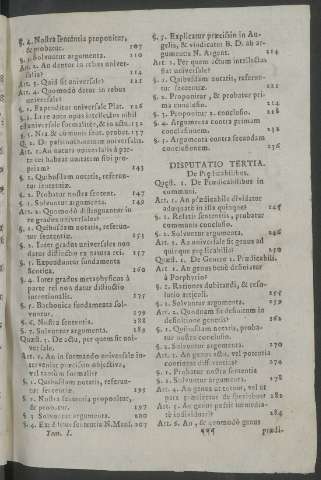 §. 4. Nostra sententia proponitur,
& probatur. 107
§. 5. Solvuntur argumenta. 110
Art. 2. An dentur in rebus univer-
salia? 114
Art. 3. Quid sit universale? 121
Art. 4. Quomodo detur in rebus
universale?
§. 1. Expenditur universale Plat. 126
Q. 2. De
Art. 1. An natura universalis à par-
te rei habeat unitatem sibi pro-
priam? 143
§. 1. Quibusdam notatis, referun-
tur sententiæ.
§. 2. Probatur nostra sentent. 147
§. 3. Solvuntur argumenta. 149
Art. 2. Quomodò distinguantur in
re gradus universales?
§. 1. Quibusdam notatis, referun-
tur sententiæ. 153
§. 2. Inter gradus universales non
datur distinctio ex natura rei. 157
§. 3. Expenduntur fundamenta
Scotica. 260
§. 4. Inter gradus metaphysicos à
parte rei non datur distinctio
intentionalis. 275
§. 5. Bachonica fundamenta sol-
vuntur. 279
§. 6. Nostra sententia. 288
§. 7. Solvuntur argumenta. 289
Quæst. 3. De actu, per quem fit uni-
versale.
Art. 1. An in formando universale in-
terveniat præcisio objectiva,
vel tantùm formalis?
§. 1. Quibusdam notatis, referun-
tur sententiæ. 195
§. 2. Nostra sententia proponitur,
& probatur. 197
§. 3. Solvuntur argumenta. 200
§. 4. Excluditur sententia N. Mend. 207
Tom. I.
§. 5. Explicatur præcisio in An-
gelis, & vindicatur B. D. ab ar-
gumentis N. Argent. 214
Art. 2. Per quem actum intellectus
fiat universale?
§. 1. Quibusdam notatis, referun-
tur sententiæ. 222
§. 2. Proponitur, & probatur pri-
ma conclusio. 224
§. 3. Proponitur 2. conclusio. 228
§. 4. Argumenta contra primam
conclusionem.
§. 5. Argumenta contra secundam
conclusionem. 236
DISPUTATIO TERTIA.
De Prædicabilibus.
Quæst. 1. De Prædicabilibus in
communi.
Art. 1. An prædicabile dividatur
adæquatè in illa quinque?
§. 1. Relatis sententiis, probatur
communis conclusio.
§. 2. Solvuntur argumenta. 246
Art. 2. An universale sit genus ad
quinque prædicabilia?
Quæst. 2. De Genere 1. Prædicabili.
Art. 1. An genus benè definiatur
à Porphyrio?
§. 2. Rationes dubitandi, & reso-
lutio articuli. 255
§. 2. Solvuntur argumenta.
Art. 2. Quodnam sit definitum in
definitione generis?
§. 1. Quibusdam notatis, proba-
tur nostra conclusio.
§. 2. Solvuntur argumenta. 270
Art. 3. An genus actu, vel potentia
contineat differentias? 274
§. 1. Probatur nostra sententia.
§. 2. Solvuntur argumenta. 278
Art. 5. An genus possit in
individuari? 284
Art. 6. An, & quomodò genus
¶¶¶ prædi-